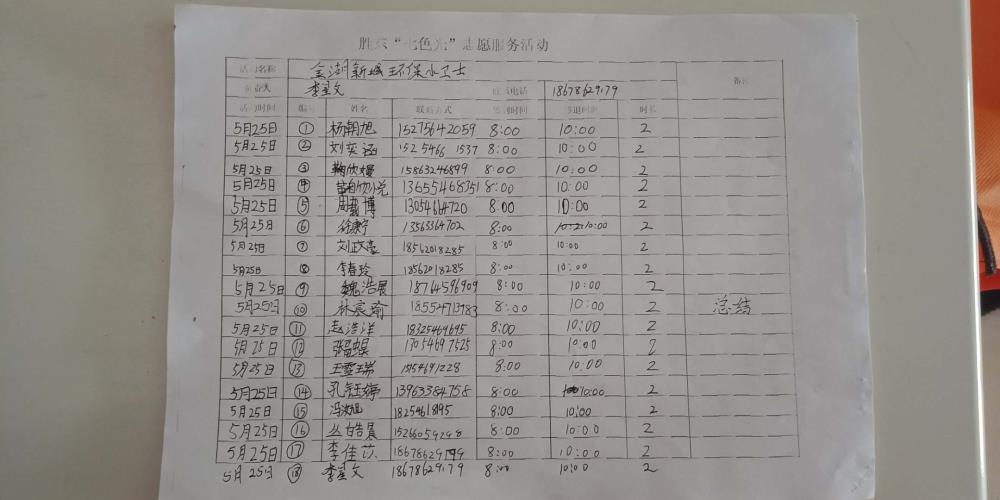 胜东“七色光”志愿服务活动
活动名称 金湖新城环保小卫士 备注
负责人 李星文 联系电话 18678629179
活动时间 编号 姓名 联系方式 签到时间 签退时间 时长
5月25日 ① 杨朝旭 15275642059 8:00 10:00 2
5月25日 ② 刘奕涵 152 5466 1537 8:00 10:00 2
5月25日 ③ 15863246899 8:00 10:00 2
5月25日 ④ 13655468351 8:00 10:00 2
5月25日 ⑤ 13054664720 8:00 10:00 2
5月25日 ⑥ 徐康宁 13563364702 8:00 10:00 2
5月25日 ⑦ 刘政豪 18562018285 8:00 10:00 2
5月25日 ⑧ 李春玲 18562018285 8:00 10:00 2
5月25日 ⑨ 魏浩展 18764596909 8:00 10:00 2
5月25日 ⑩ 林宸瑜 18554713783 8:00 10:00 2 总结
5月25日 ⑪ 赵浩洋 18325469695 8:00 10:00 2
5月25日 ⑫ 17054697525 8:00 10:00 2
5月25日 ⑬ 王雪瑞 8:00 10:00 2
5月25日 ⑭ 孔钰婷 13963384758 8:00 10:00 2
5月25日 ⑮ 8:00 10:00 2
5月25日 ⑯ 丛皓晨 8:00 10:00 2
5月25日 ⑰ 李佳芯 8:00 10:00 2
5月25日 ⑱ 李星文 18678629179 8:00 10:00 2